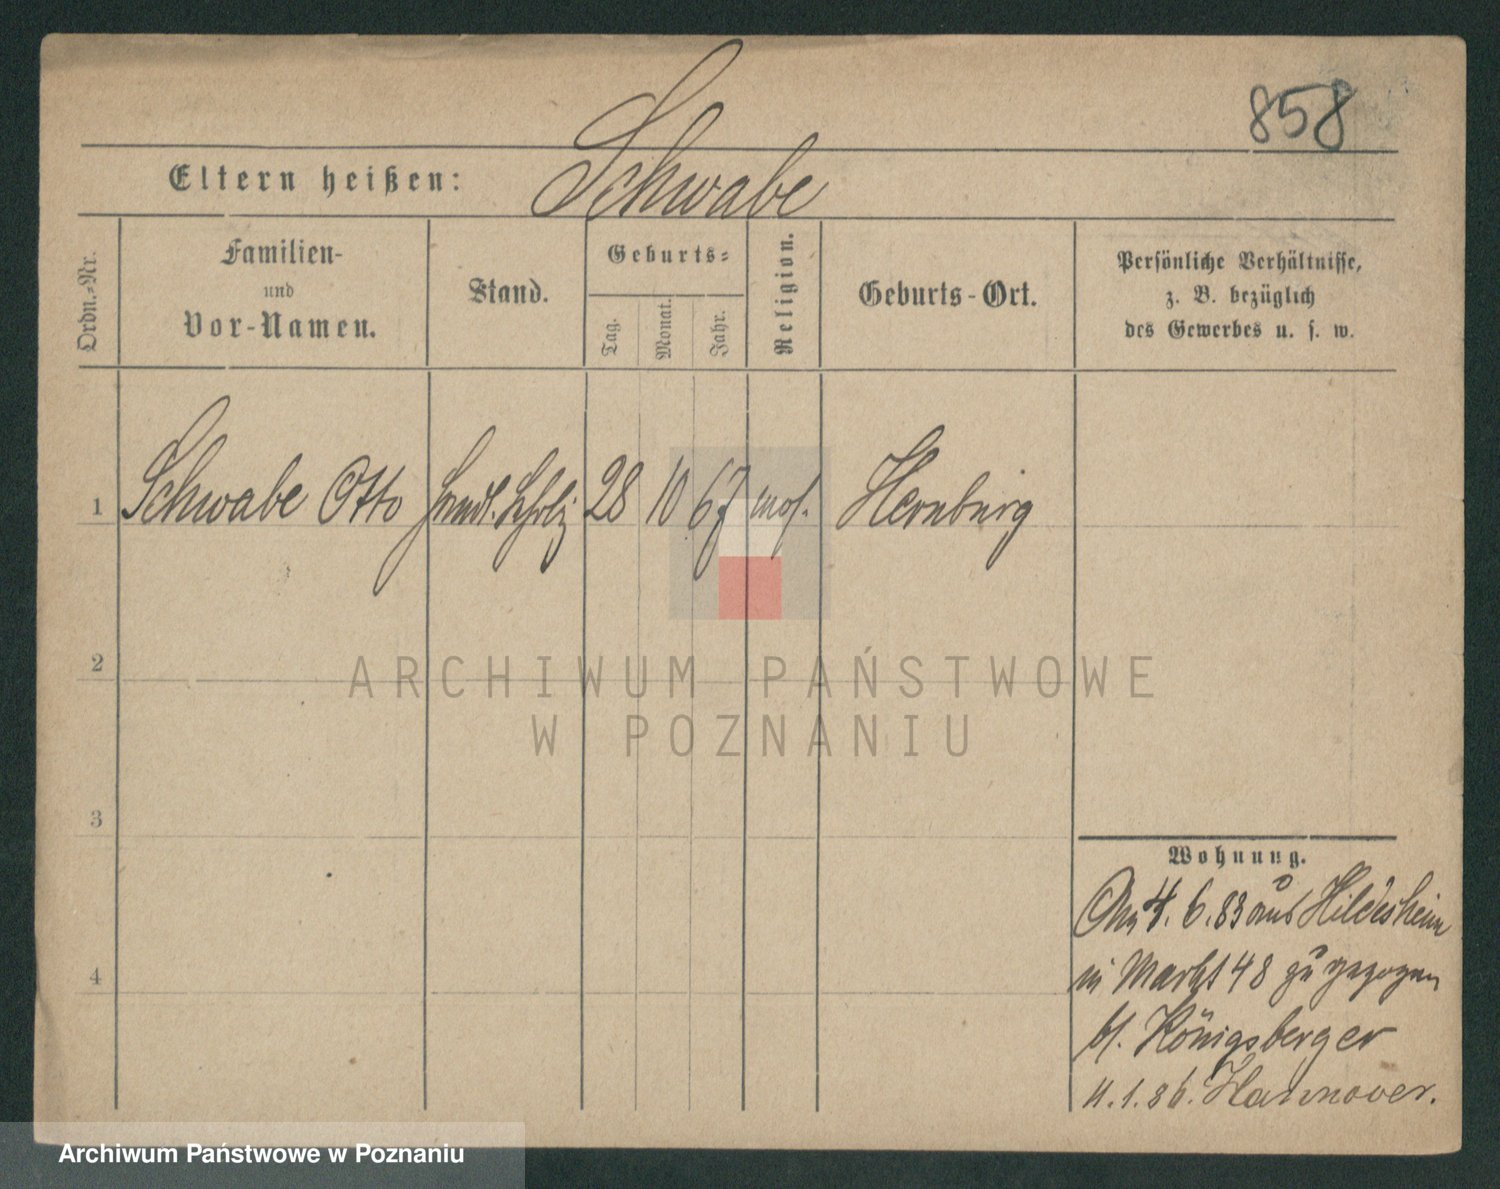 858
Eltern heißen: Schwabe
Ordn.-Nr.
Familien-
und
Vor-Namen.
Stand.
Geburts-
Tag.
Monat.
Jahr.
Religion.
Geburts-Ort.
Persönliche Verhältnisse,
z. B. bezüglich
des Gewerbes u. s. w.
1 Schwabe Otto 28 10 67 mos.
2
3
4
Wohnung.
4. 6. 83 aus Hildesheim
in Markt 48 zugezogen
bl. Königsberger
11. 1. 86. Hannover.
ARCHIWUM PAŃSTWOWE
W POZNANIU
Archiwum Państwowe w Poznaniu